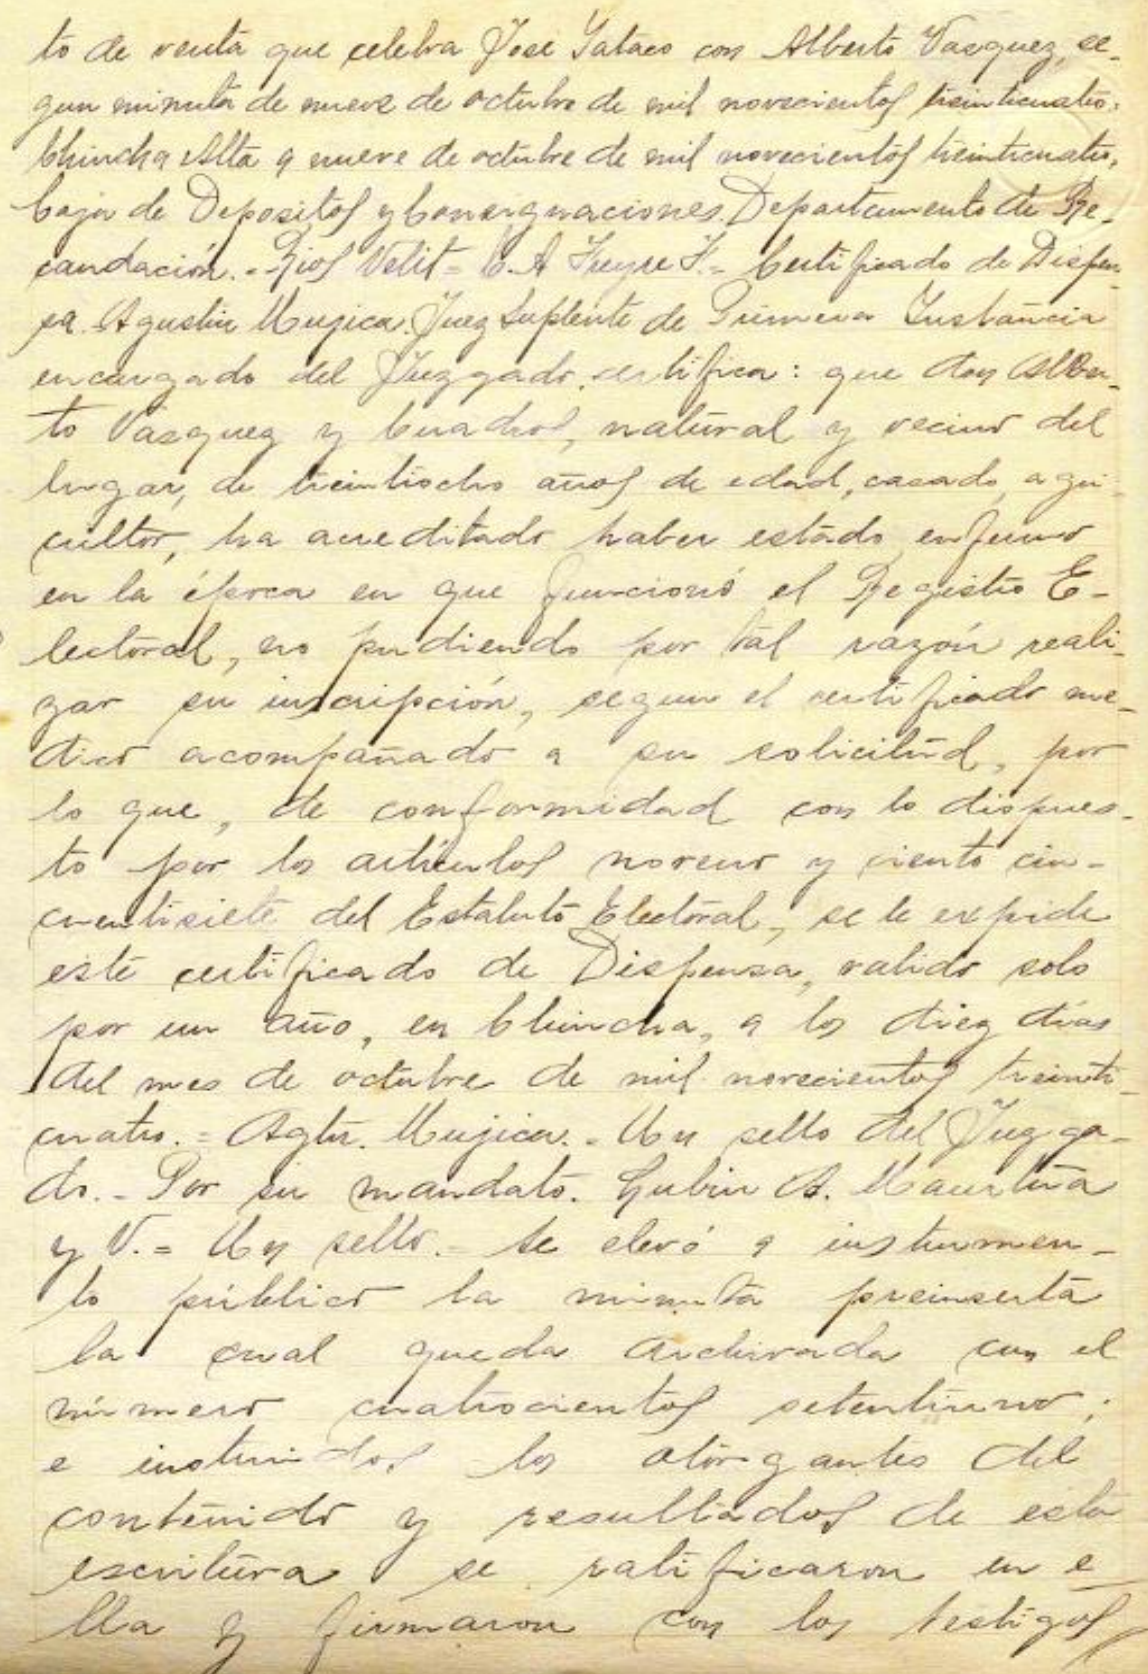 to de venta que celebra Jose Yataco con Alberto Vasquez, se-
gun minuta de nueve de octubre de mil novecientos treinticuatro.
Chincha Alta a nueve de octubre de mil novecientos treinticuatro.
Caja de Depositos y Consignaciones. Departamento de Re-
caudación.- Rios Velit = C. A Freyre F.- Certificado de Dispen-
sa. Agustin Mujica, Juez Suplente de Primera Instancia
encargado del Juzgado, certifica: que don Alber-
to Vasquez y Cuadros, natural y vecino del
lugar, de treintiocho años de edad, casado, agri-
cultor, ha acreditado haber estado enfermo
en la época en que funcionó el Registro E-
lectoral, no pudiendo por tal razón reali-
zar su inscripción, segun el certificado me-
dico acompañado a su solicitud, por
lo que, de conformidad con lo dispues-
to por los artículos noveno y ciento cin-
cuentisiete del Estatuto Electoral, se le expide
este certificado de Dispensa, valido solo
por un año, en Chincha, a los diez dias
del mes de octubre de mil novecientos treinti-
cuatro. = Agtn. Mujica.- Un sello del Juzga-
do.- Por su mandato. Lubin A. Maurtua
y V. = Un sello.- Se elevó a instrumen-
to público la minuta preinserta
la cual queda archivada con el
número cuatrocientos setentiuno;
e instruidos los otorgantes del
contenido y resultados de esta
escritura se ratificaron en e
lla y firmaron con los testigos